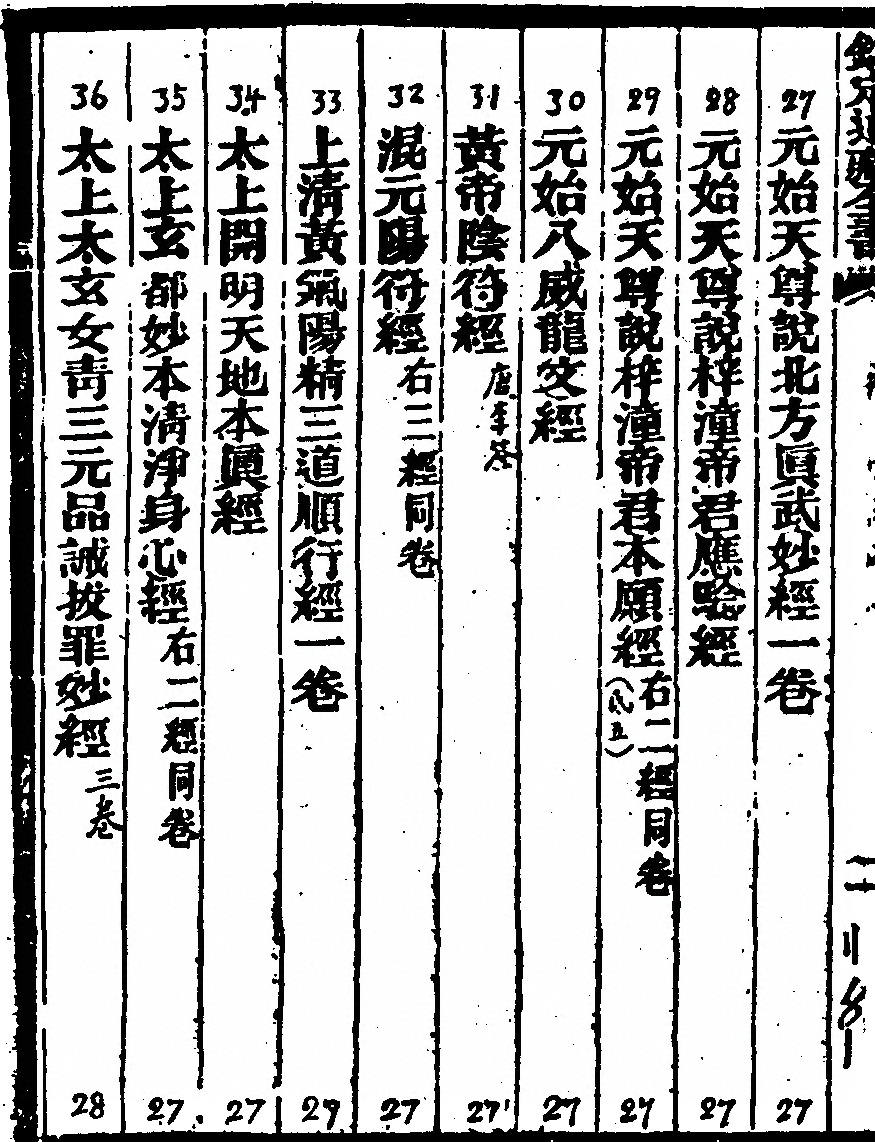 27 元始天尊說北方眞武妙經一卷 27
28 元始天尊說梓潼帝君應驗經 27
29 元始天尊說梓潼帝君本願經 右二經同卷 27
30 元始八威龍文經 27
31 黃帝陰符經 唐李筌 27
32 混元陽符經 右三經同卷 27
33 上淸黃氣陽精三道順行經一卷 27
34 太上開明天地本眞經 27
35 太上玄都妙本淸淨身心經 右二經同卷 27
36 太上太玄女靑三元品誡拔罪妙經 三卷 28